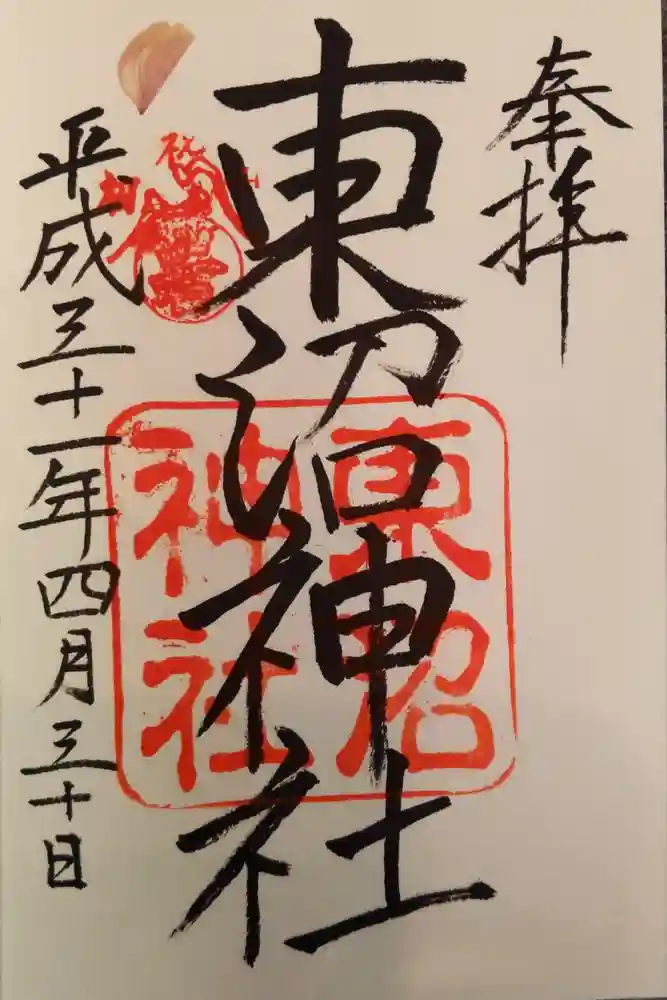 奉拝
東沼神社
平成三十一年四月三十日
東沼
神社